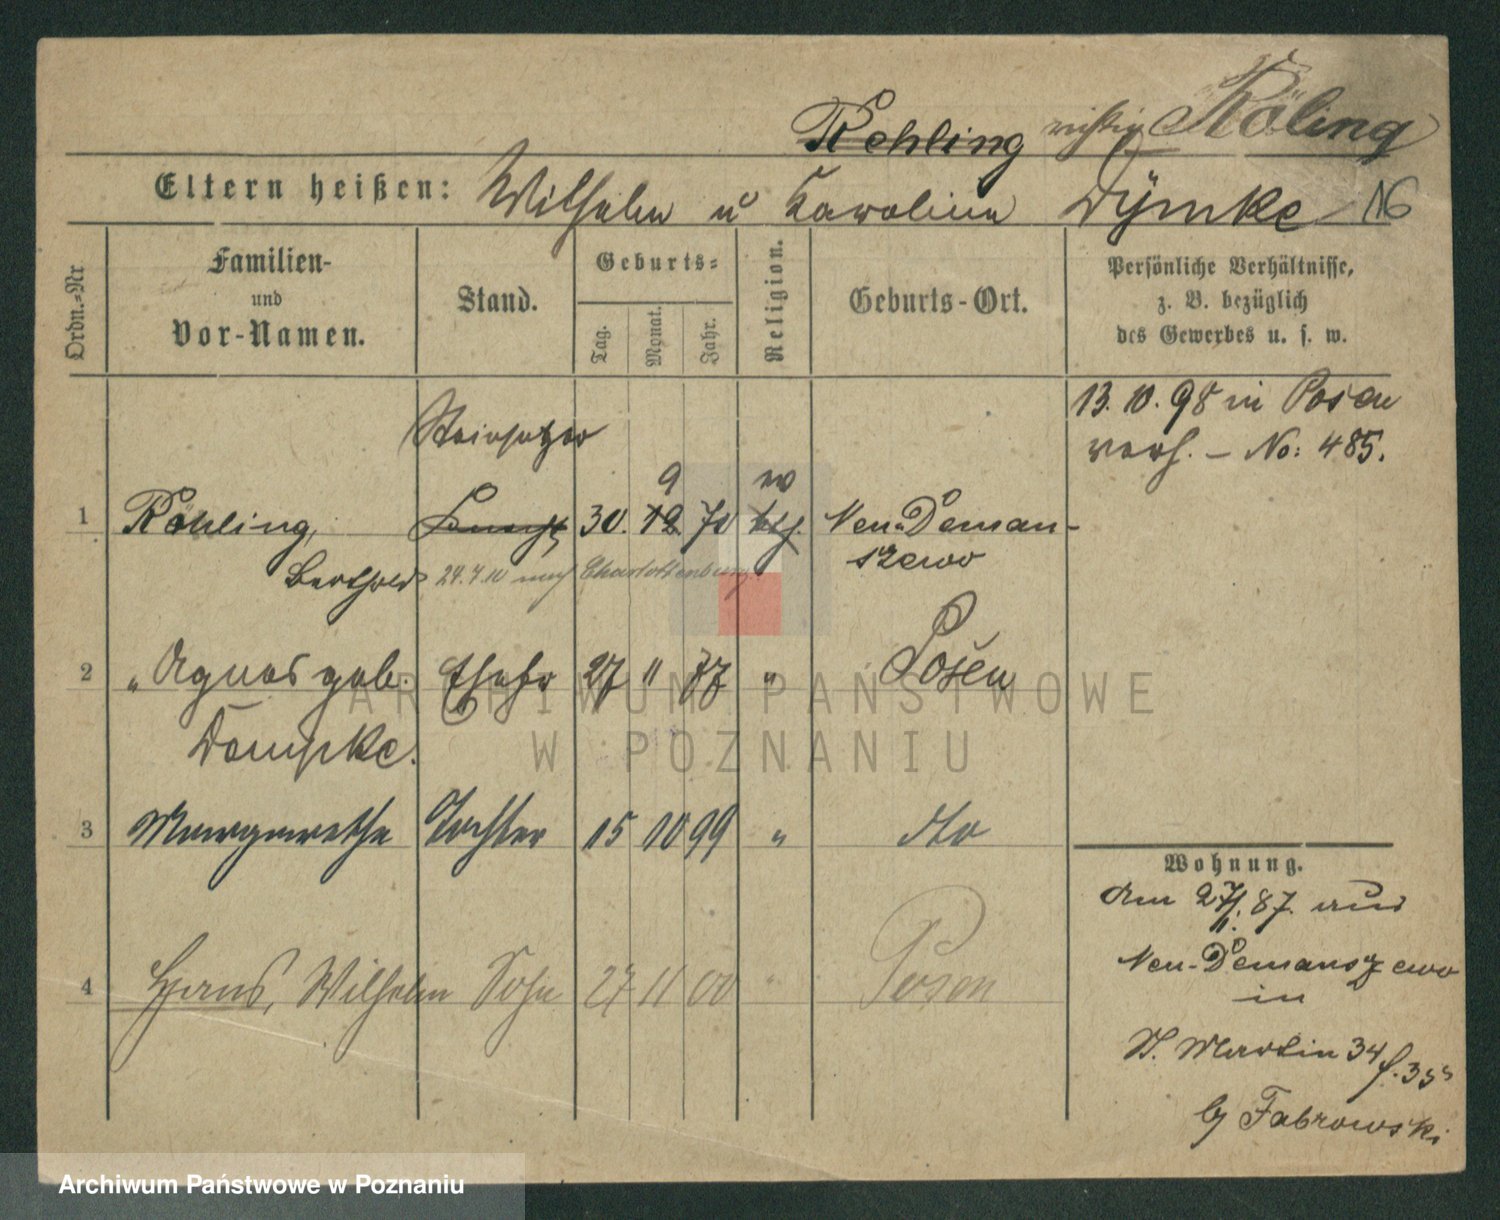 Rehling richtig Röling
Eltern heißen: Wilhelm u Karolina Dymke 16
Ordn.-Nr.
Familien-
und
Vor-Namen.
Stand.
Geburts-
Tag.
Monat.
Jahr.
Religion.
Geburts-Ort.
Persönliche Verhältnisse,
z. B. bezüglich
des Gewerbes u. s. w.
13. 10. 98 in Posen
verh. – No: 485.
Steinsetzer
9
ev
1 Röhling, Knecht 30. 12. 70 kth. Neu-Deman-
szewo
Berthold 24.4.10 nach Charlottenburg
2 " Agnes geb. Ehefr 27 " 77 " Posen
Dampke.
3 Margarethe Tochter 15 10 99 " dto
4 Hans, Wilhelm Sohn 27 11 00 " Posen
Wohnung.
Am 27/11. 87. aus
Neu-Demanszewo
in
St. Martin 34
b/ Fabrowski
ARCHIWUM PAŃSTWOWE
W POZNANIU
Archiwum Państwowe w Poznaniu